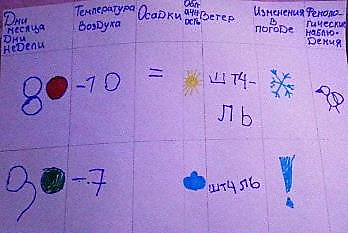 Дни месяца Дни недели
Температура воздуха
Осадки
Облачность
Ветер
Изменения в погоде
Фенологические наблюдения
8 -10 = штчль
9 -7 штчль